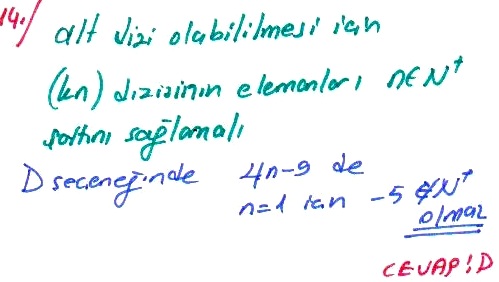 14./ alt dizi olabililmesi için
(kn) dizisinin elemanları n∈N⁺
şartını sağlamalı
D seçeneğinde 4n-9 da
n=1 için -5 ∉N⁺
olmaz
CEVAP:D